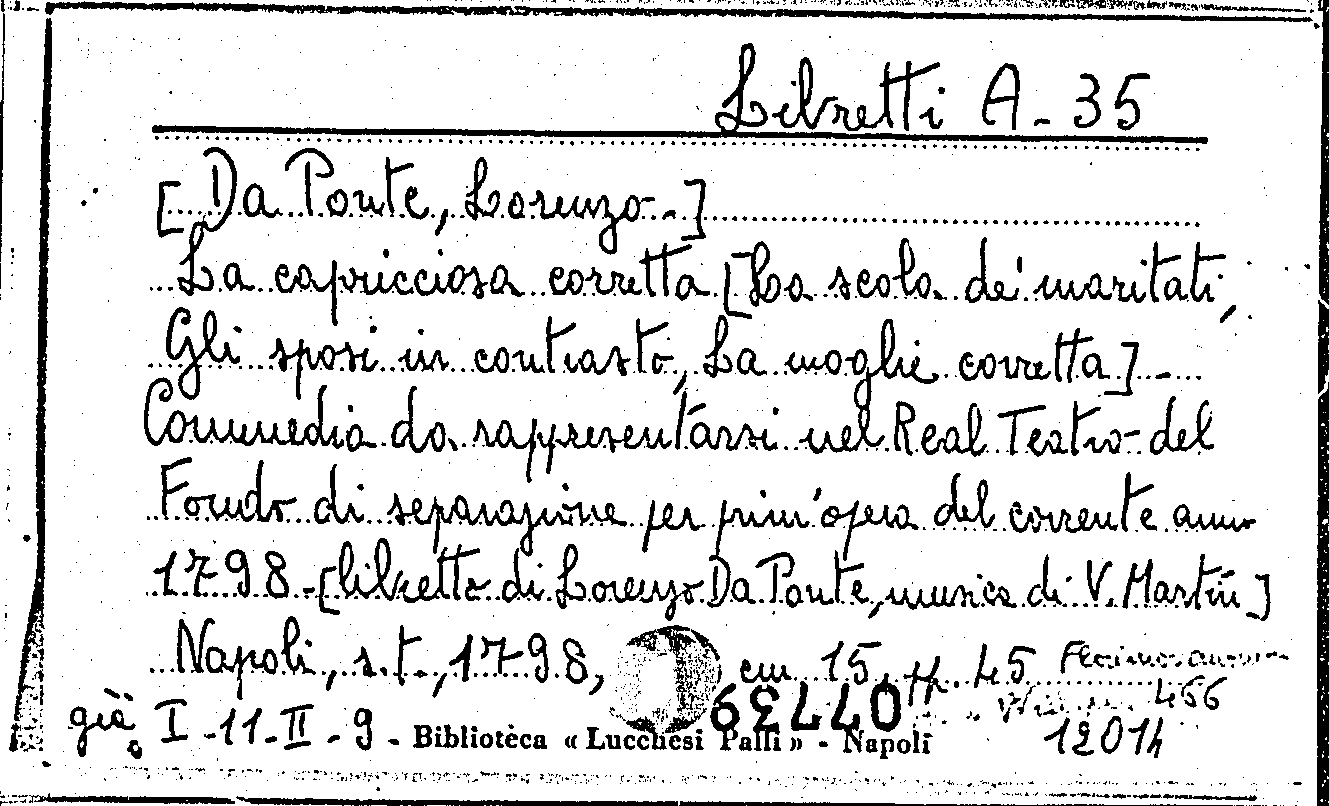 Libretti A - 35
[Da Ponte, Lorenzo -]
La capricciosa corretta [La scola de' maritati,
Gli sposi in contrasto, La moglie corretta] -
Commedia da rappresentarsi nel Real Teatro del
Fondo di separazione per prim'opera del corrente anno
1798 - [libretto di Lorenzo Da Ponte, musica di V. Martin]
Napoli, s.t., 1798, cm 15, pp. 45
già I - 11 - II - 9 - Biblioteca « Lucchesi Palli » - Napoli
63440
466
12014